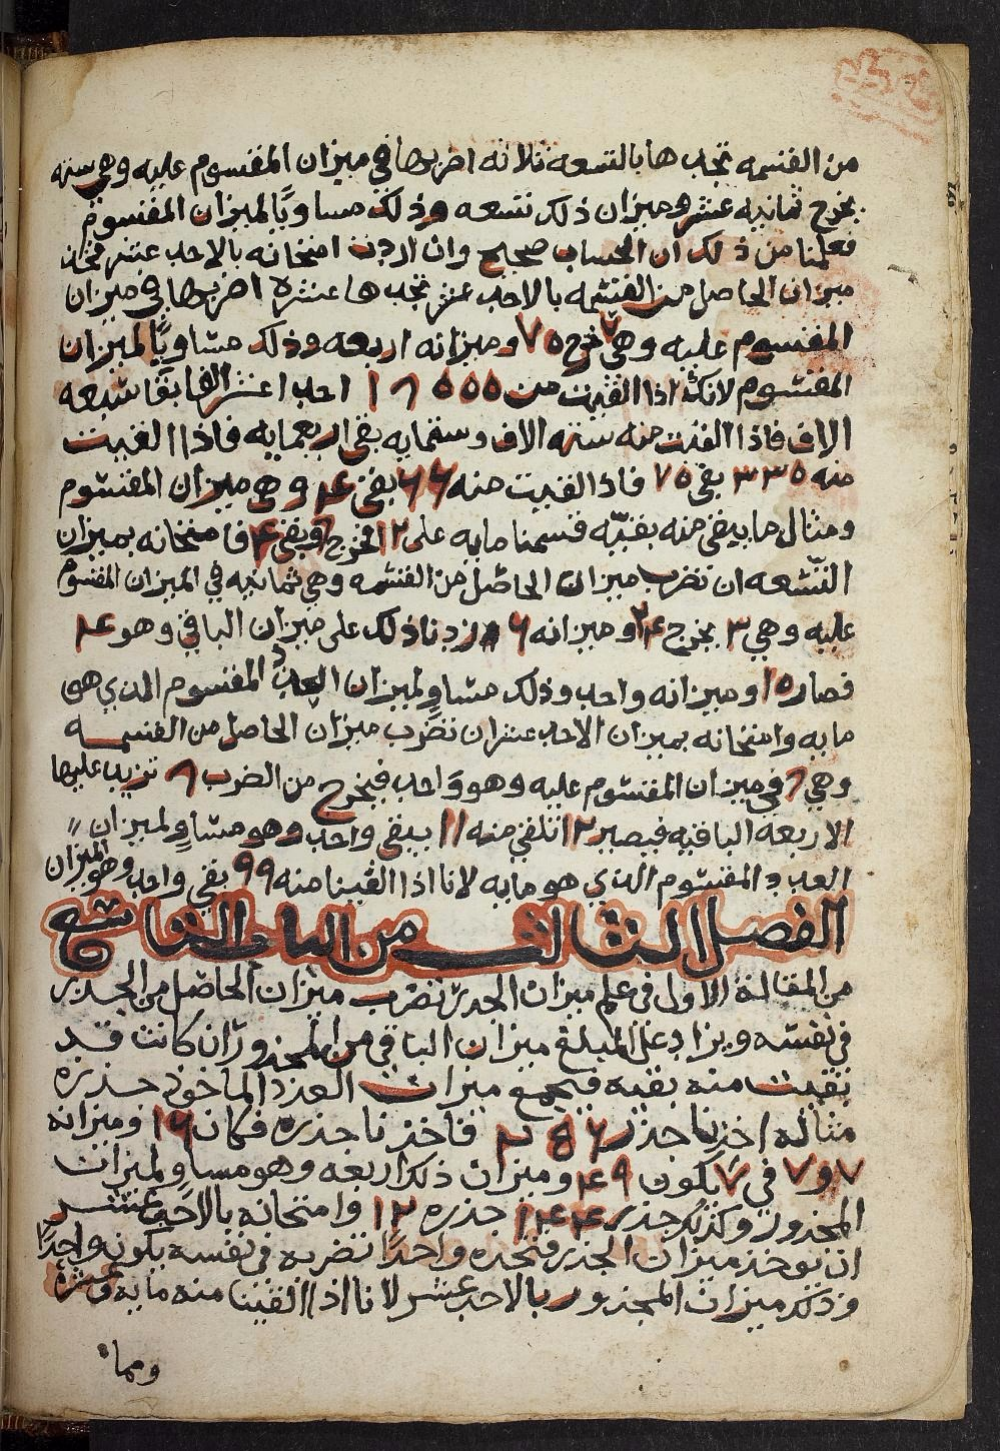 من القسمه تجدها بالتسعه ثلاثه اضربها في ميزان المقسوم عليه وهي سته
يخرج ثمانيه عشر وميزان ذلك تسعه وذلك مساويًا لميزان المقسوم
فعلمنا من ذلك ان الحساب صحيح وان اردت امتحانه بالاحد عشر فخذ
ميزان الحاصل من القسمه بالاحد عشر تجدها عشره اضربها في ميزان
المقسوم عليه وهي خرج ٧٥ وميزانه اربعه وذلك مساويًا لميزان
المقسوم لانك اذا القيت من احد اعشر الفا بقا سبعه
الاف فاذا القيت منه سته الاف وستمايه بقى اربعمايه فاذا القيت
منه ٣٣٥ بقى ٧٥ فاذا القيت منه ٦٦ بقى ٤ وهي ميزان المقسوم
ومثال ما يبقى منه بقيّه قسمنا مايه على ١٢ فخرج وبقى ٤ فامتحانه بميزان
التّسعه ان تضرب ميزان الحاصل من القسمه وهي ثمانيه في الميزان المقسوم
عليه وهي ٣ يخرج ٢٤ وميزانه ٦ زدنا ذلك على ميزان الباقي وهو ٤
فصار ١٥ وميزانه واحد وذلك مساوٍ لميزان العدد المقسوم الذي هو
مايه وامتحانه بميزان الاحد عشر ان تضرب ميزان الحاصل من القسمه
وهي ٨ في ميزان المقسوم عليه وهو واحد فيخرج من الضرب ٨ تزيد عليها
الاربعه الباقيه فيصير ١٢ تلقي منه ١١ يبقى واحد وهو مساوٍ لميزان
العدد المقسوم الذي هو مايه لانا اذا القينا منه ٩٩ بقى واحد وهو الميزان
الفصل الثالث من الباب التاسع
من المقالة الاولى في علم ميزان الجذر تضرب ميزان الحاصل من الجذر
في نفسه ويزاد على المبلغ ميزان الباقي من المجذور ان كانت قد
بقيت منه بقيه فيجمع ميزان العدد الماخوذ جذره
مثاله اخذنا جذر فاخذنا جذره فكان ١٦ وميزانه
٧ و٧ في ٧ يكون ٤٩ وميزان ذلك اربعه وهو مساوٍ لميزان
المجذور وكذلك جذر ١٤٤ جذره ١٢ وامتحانه بالاحد عشر
ان يوخذ ميزان الجذر فتجده واحدًا تضربه في نفسه يكون واحدًا
وذلك ميزان المجذور بالاحد عشر لانا اذا القينا منه مايه وعشره
ومما